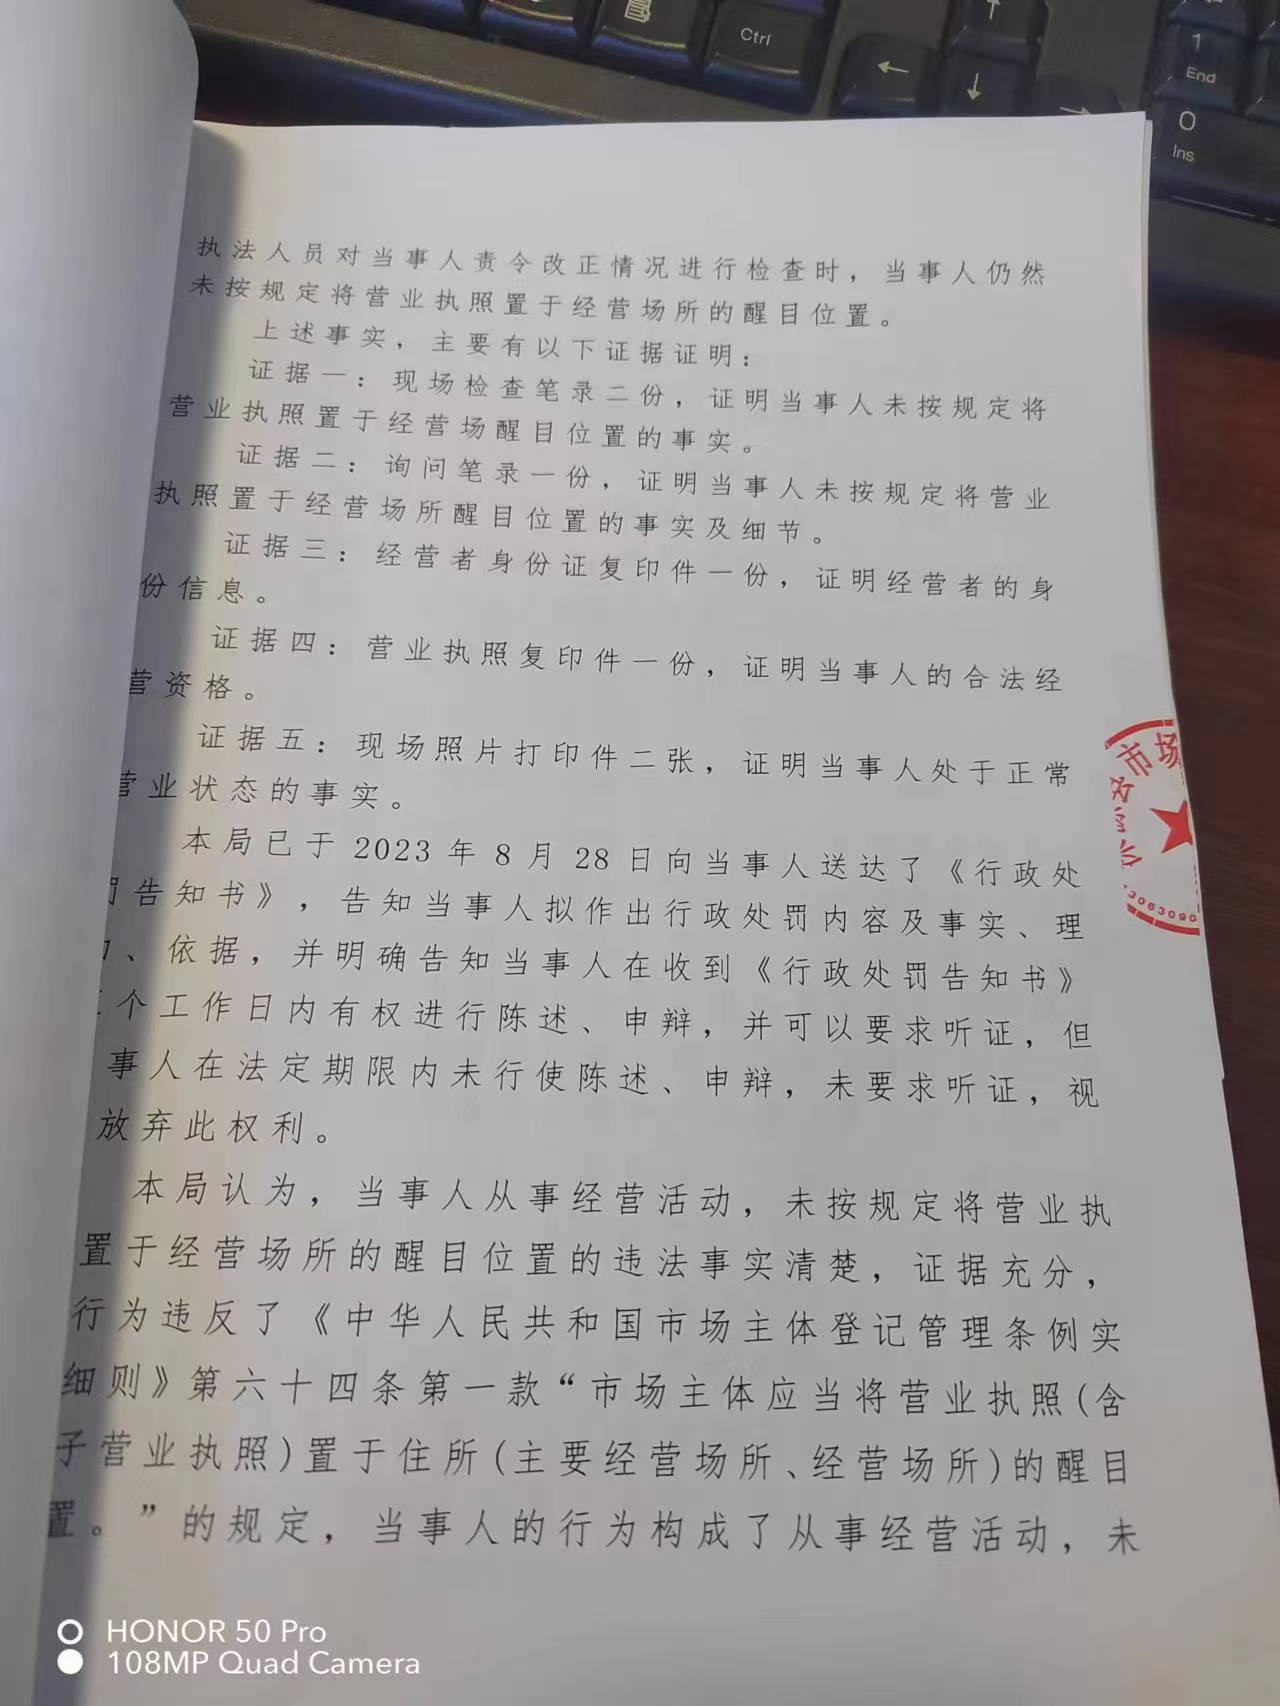 Ctrl
←
↑
↓
→
1
End
0
Ins
执法人员对当事人责令改正情况进行检查时，当事人仍然
未按规定将营业执照置于经营场所的醒目位置。
上述事实，主要有以下证据证明：
证据一：现场检查笔录二份，证明当事人未按规定将
营业执照置于经营场醒目位置的事实。
证据二：询问笔录一份，证明当事人未按规定将营业
执照置于经营场所醒目位置的事实及细节。
证据三：经营者身份证复印件一份，证明经营者的身
份信息。
证据四：营业执照复印件一份，证明当事人的合法经
营资格。
证据五：现场照片打印件二张，证明当事人处于正常
营业状态的事实。
本局已于 2023 年 8 月 28 日向当事人送达了《行政处
罚告知书》，告知当事人拟作出行政处罚内容及事实、理
、依据，并明确告知当事人在收到《行政处罚告知书》
个工作日内有权进行陈述、申辩，并可以要求听证，但
事人在法定期限内未行使陈述、申辩，未要求听证，视
放弃此权利。
本局认为，当事人从事经营活动，未按规定将营业执
置于经营场所的醒目位置的违法事实清楚，证据充分，
行为违反了《中华人民共和国市场主体登记管理条例实
细则》第六十四条第一款“市场主体应当将营业执照(含
子营业执照)置于住所(主要经营场所、经营场所)的醒目
置。”的规定，当事人的行为构成了从事经营活动，未
市场
3063090
HONOR 50 Pro
108MP Quad Camera